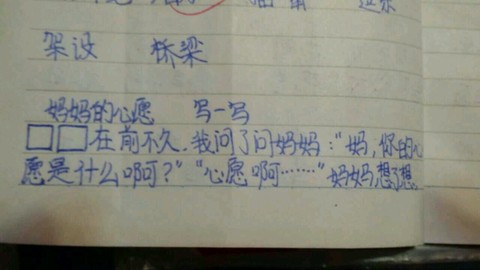 架设 桥梁
妈妈的心愿 写一写
□□在前不久,我问了问妈妈:“妈,你的心
愿是什么啊?”“心愿啊……”妈妈想了想